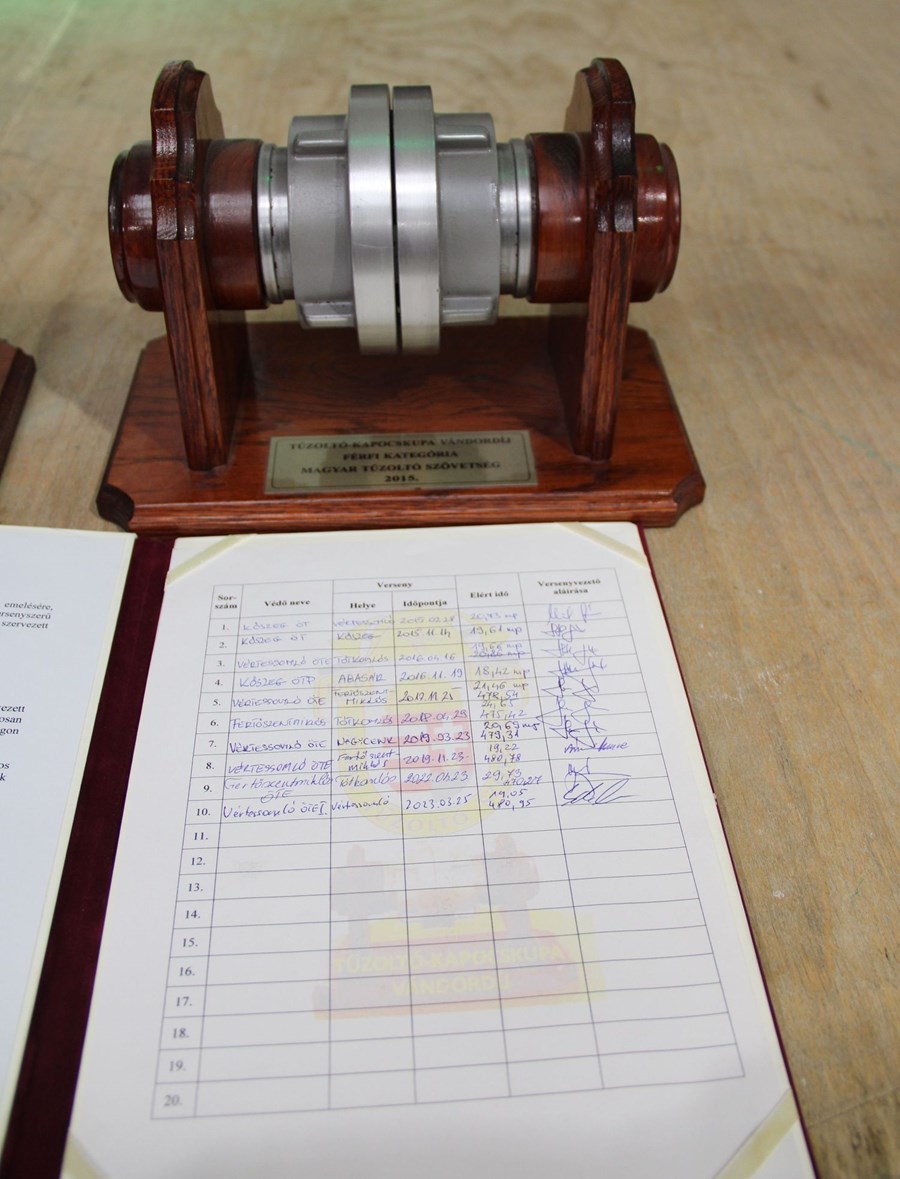 TŰZOLTÓ-KAPOCSKUPA VÁNDORDÍJ
FÉRFI KATEGÓRIA
MAGYAR TŰZOLTÓ SZÖVETSÉG
2015.
emelésére,
ersenyszerű
szervezett
ezett
osan
gon
os
k
Sor-szám Védő neve Verseny Helye Időpontja Elért idő Versenyvezető aláírása
1. KŐSZEG ÖT VÉRTESSOMLÓ 2015.02.28
2. KŐSZEG ÖT KŐSZEG 2015.11.14 19,61 mp
3. VÉRTESSOMLÓ ÖTE TÓTKOMLÓS 2016.04.16
4. KŐSZEG ÖTP ABASÁR 2016.11.19 18,42 mp
5. VÉRTESSOMLÓ ÖTE FERTŐSZENT-MIKLÓS 2017.11.25 21,46 mp
6. FERTŐSZENTMIKLÓS TÓTKOMLÓS 475,42
7. VÉRTESSOMLÓ ÖTE NAGYCENK 2019.03.23 20,69 mp 479,31
8. VÉRTESSOMLÓ ÖTE Fertőszent-miklós 2019.11.23 19,22 480,78
9. Fertőszentmiklós ÖTE 2022.04.23 29,73
10. Vértessomló ÖTE I. Vértessomló 2023.03.25 19,05 480,95
11.
12.
13.
14.
15.
16.
17.
18.
19.
20.
TŰZOLTÓ-KAPOCSKUPA
VÁNDORDÍJ